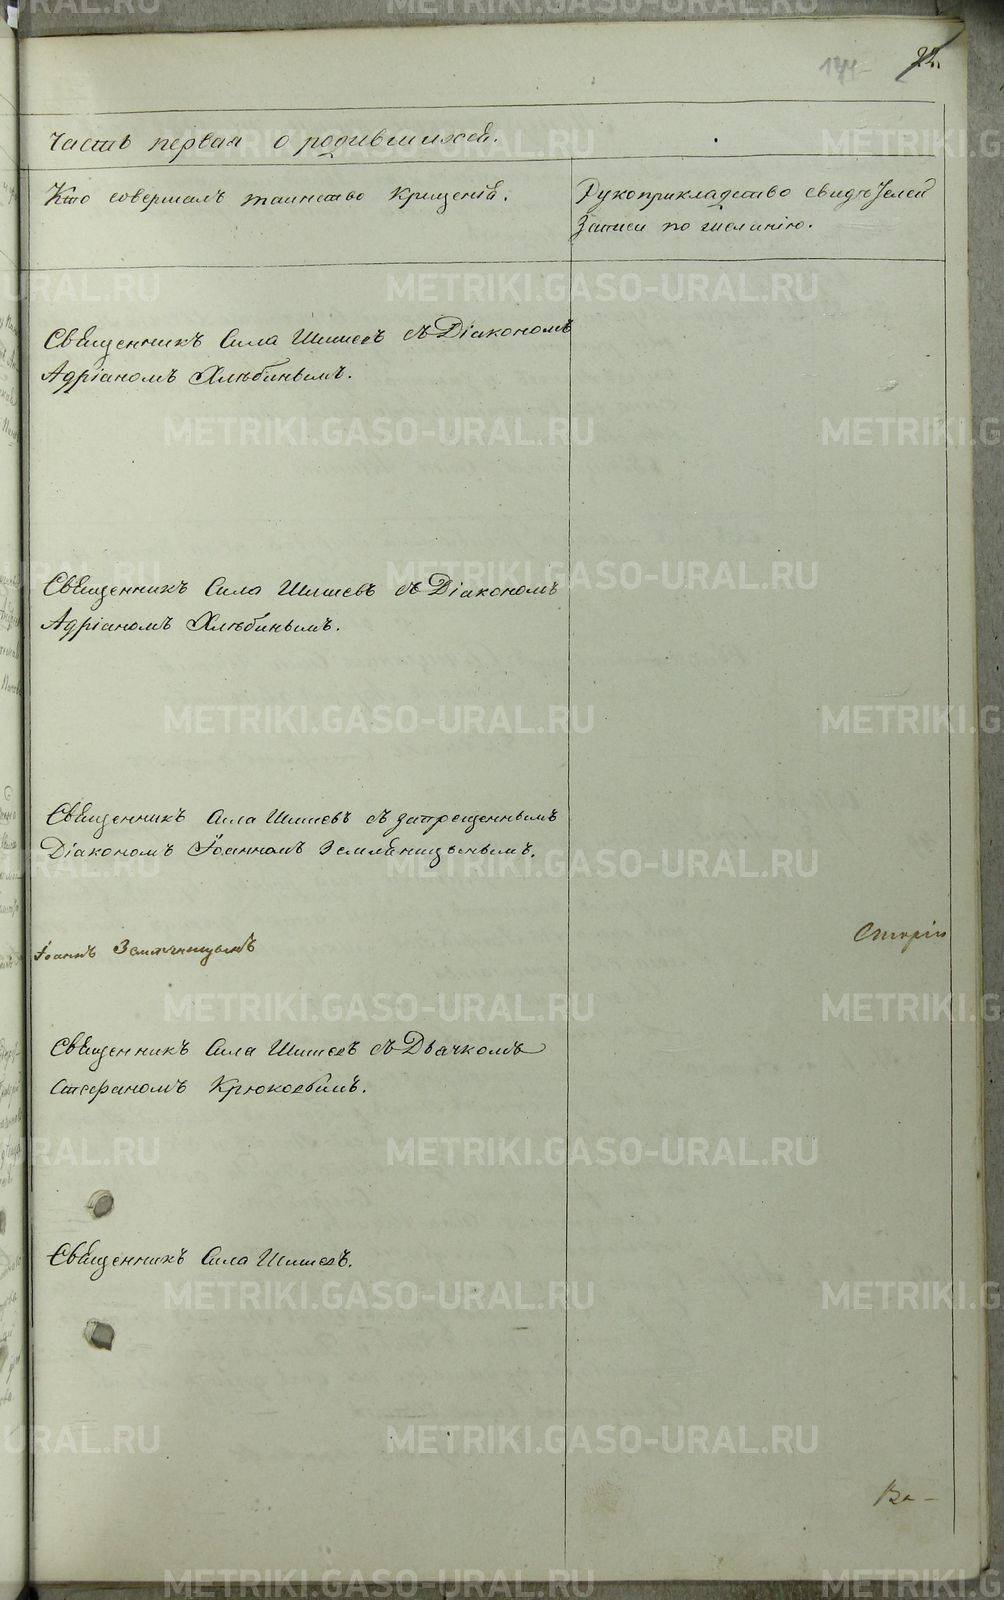 144
72.
Часть первая о родившихся.
Кто совершалъ таинство крещенія.
Рукоприкладство свидѣтелей
записи по желанію.
Священникъ Сила Шишевъ съ Діакономъ
Адріаномъ Хлѣбинымъ.
Священникъ Сила Шишевъ съ Діакономъ
Адріаномъ Хлѣбинымъ.
Священникъ Сила Шишевъ съ запрещеннымъ
Діакономъ Іоанномъ Земляницынымъ.
Іоаннъ Земляницынъ
Священникъ Сила Шишевъ съ Дьячкомъ
Стефаномъ Крюковымъ.
Священникъ Сила Шишевъ.
METRIKI.GASO-URAL.RU